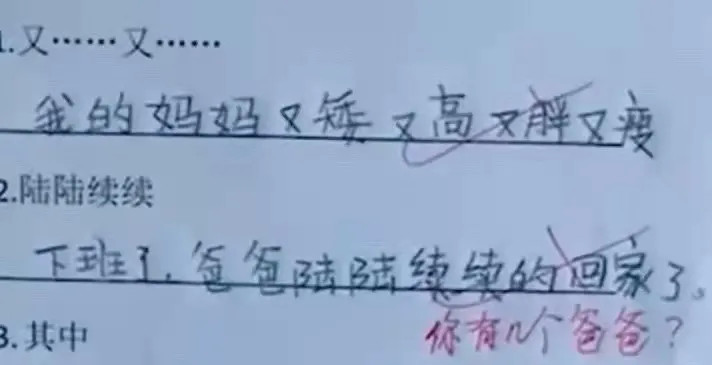 1.又……又……
我的妈妈又矮又高又胖又瘦
2.陆陆续续
下班了,爸爸陆陆续续的回家了。
你有几个爸爸?
3.其中